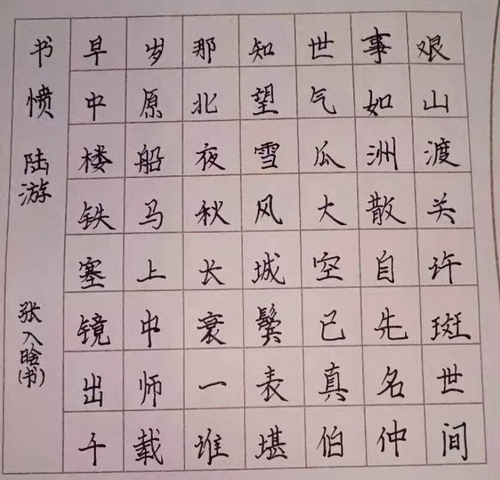 书愤
陆游
早岁那知世事艰
中原北望气如山
楼船夜雪瓜洲渡
铁马秋风大散关
塞上长城空自许
镜中衰鬓已先斑
出师一表真名世
千载谁堪伯仲间
张入晗(书)